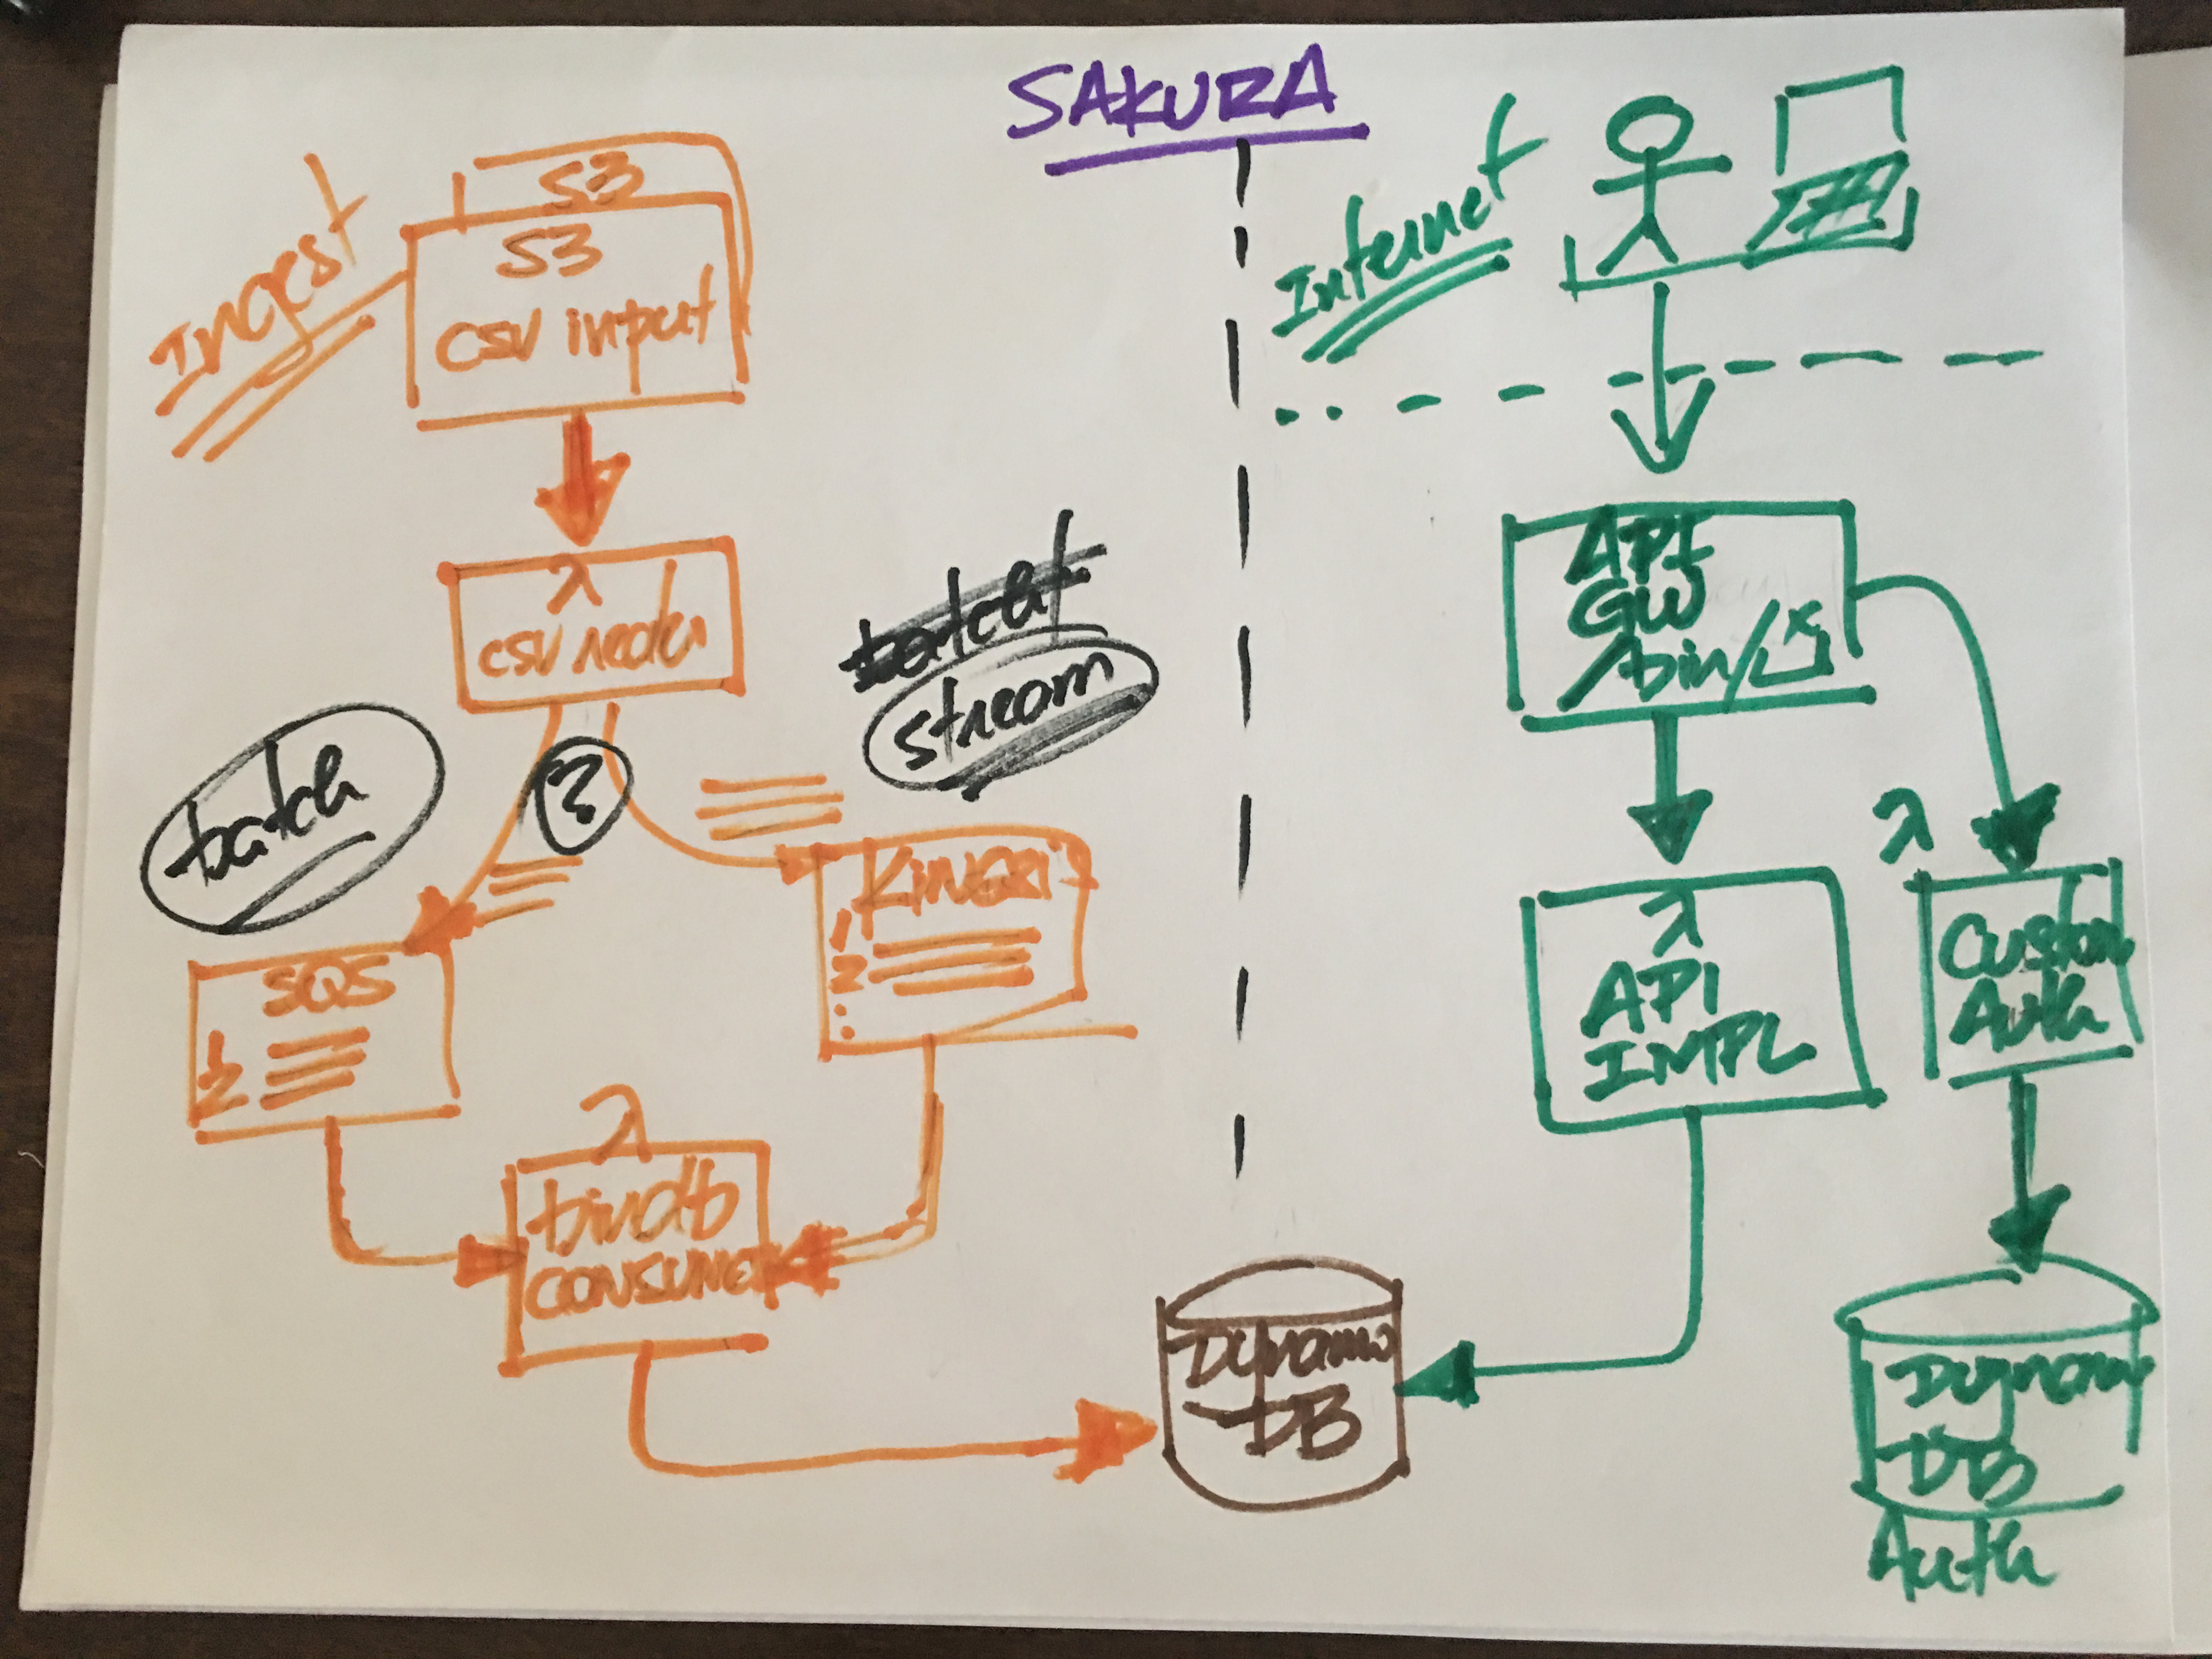 SAKURA
Ingest
S3
S3
CSV input
λ
CSV reader
batch
?
batch
stream
SQS
1
2
Kinesis
1
2
λ
bindb
CONSUMER
Dynamo
DB
Internet
API
GW
λ
API
IMPL
λ
Custom
Auth
Dynamo
DB
Auth